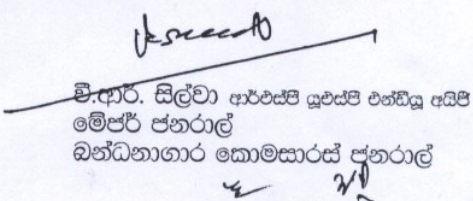 වී.ආර්. සිල්වා ආර්එස්පී යූඑස්පී එන්ඩීයූ අයිජී
මේජර් ජනරාල්
බන්ධනාගාර කොමසාරිස් ජනරාල්